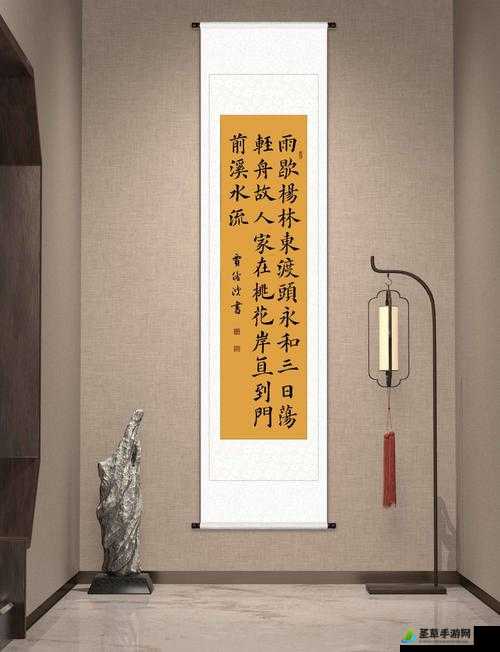 雨歇楊林東渡頭永和三日蕩
輕舟故人家在桃花岸直到門
前溪水流
書
圣草手游网